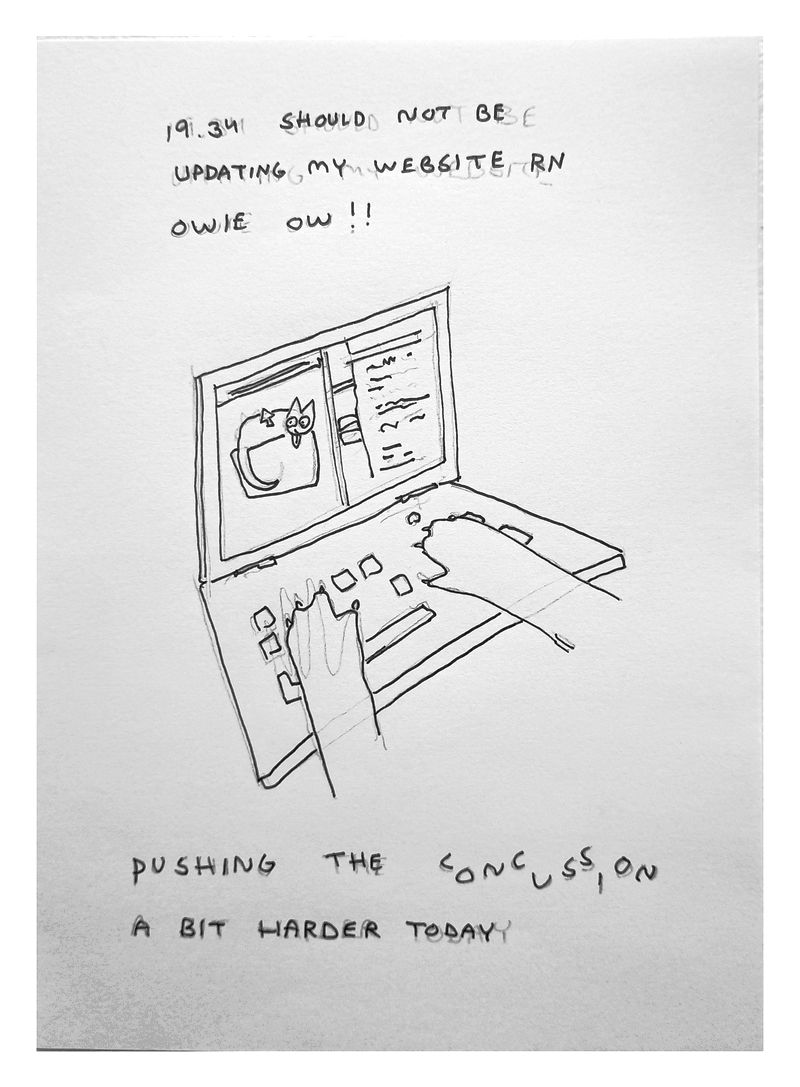 19.34 SHOULD NOT BE
UPDATING MY WEBSITE RN
OWIE OW!!
PUSHING THE CONCUSSION
A BIT HARDER TODAY